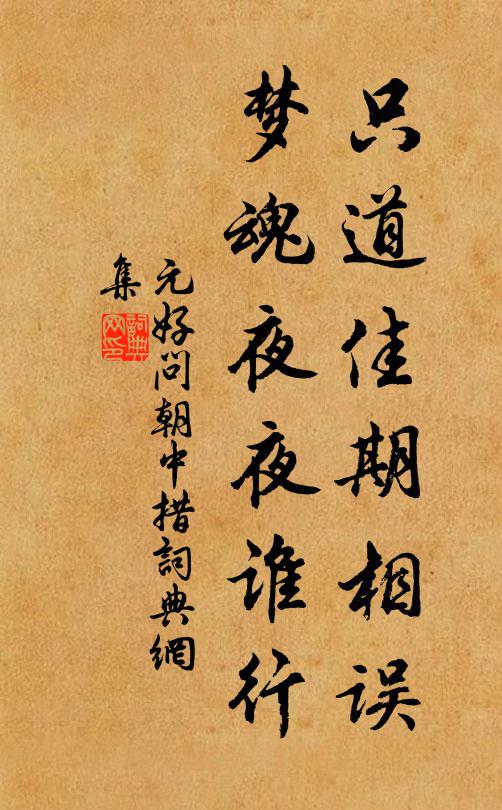 只道佳期相误
梦魂夜夜谁行
元好问朝中措詞典網
集
詞典网印